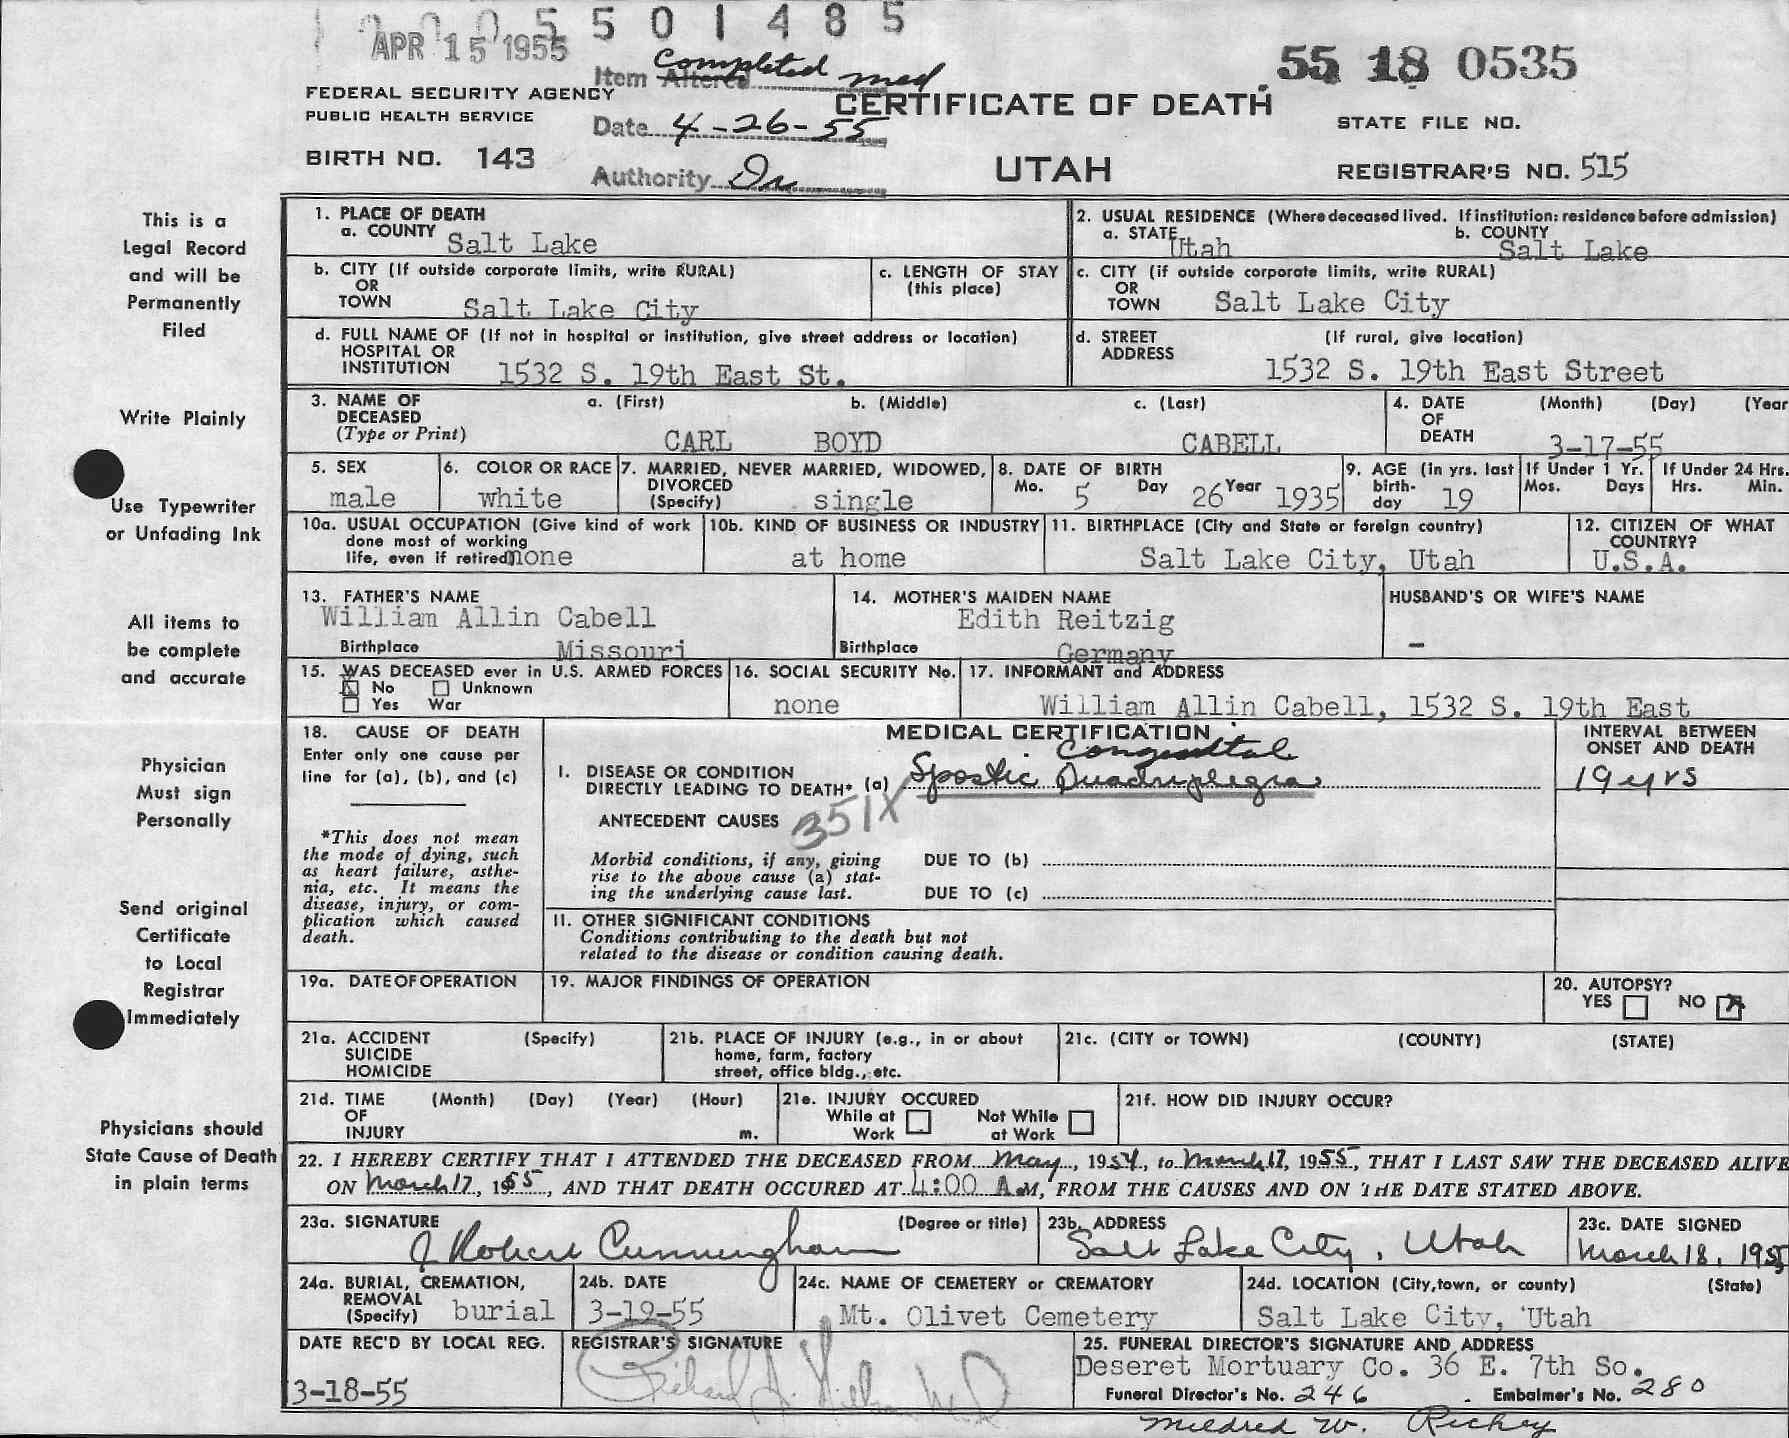 5 5 0 1 4 8 5
APR 15 1955
Item Altered Completed med
55 18 0535
FEDERAL SECURITY AGENCY
PUBLIC HEALTH SERVICE
CERTIFICATE OF DEATH
STATE FILE NO.
Date 4-26-55
BIRTH NO. 143
Authority Dr
UTAH
REGISTRAR'S NO. 515
This is a
Legal Record
and will be
Permanently
Filed
Write Plainly
Use Typewriter
or Unfading Ink
All items to
be complete
and accurate
Physician
Must sign
Personally
Send original
Certificate
to Local
Registrar
Immediately
Physicians should
State Cause of Death
in plain terms
1. PLACE OF DEATH
a. COUNTY Salt Lake
2. USUAL RESIDENCE (Where deceased lived. If institution: residence before admission)
a. STATE Utah b. COUNTY Salt Lake
b. CITY (If outside corporate limits, write RURAL)
OR
TOWN Salt Lake City
c. LENGTH OF STAY
(this place)
c. CITY (if outside corporate limits, write RURAL)
OR
TOWN Salt Lake City
d. FULL NAME OF (If not in hospital or institution, give street address or location)
HOSPITAL OR
INSTITUTION 1532 S. 19th East St.
d. STREET (If rural, give location)
ADDRESS
1532 S. 19th East Street
3. NAME OF a. (First) b. (Middle) c. (Last)
DECEASED
(Type or Print) CARL BOYD CABELL
4. DATE (Month) (Day) (Year
OF
DEATH 3-17-55
5. SEX
male
6. COLOR OR RACE
white
7. MARRIED, NEVER MARRIED, WIDOWED,
DIVORCED
(Specify) single
8. DATE OF BIRTH
Mo. 5 Day 26 Year 1935
9. AGE (in yrs. last
birth-
day 19
If Under 1 Yr.
Mos. Days
If Under 24 Hrs.
Hrs. Min.
10a. USUAL OCCUPATION (Give kind of work
done most of working
life, even if retired) none
10b. KIND OF BUSINESS OR INDUSTRY
at home
11. BIRTHPLACE (City and State or foreign country)
Salt Lake City, Utah
12. CITIZEN OF WHAT
COUNTRY?
U.S.A.
13. FATHER'S NAME
William Allin Cabell
Birthplace Missouri
14. MOTHER'S MAIDEN NAME
Edith Reitzig
Birthplace Germany
HUSBAND'S OR WIFE'S NAME
-
15. WAS DECEASED ever in U.S. ARMED FORCES
No Unknown
Yes War
16. SOCIAL SECURITY No.
none
17. INFORMANT and ADDRESS
William Allin Cabell, 1532 S. 19th East
18. CAUSE OF DEATH
Enter only one cause per
line for (a), (b), and (c)
*This does not mean
the mode of dying, such
as heart failure, asthe-
nia, etc. It means the
disease, injury, or com-
plication which caused
death.
MEDICAL CERTIFICATION
Congenital
I. DISEASE OR CONDITION
DIRECTLY LEADING TO DEATH* (a) Spastic Quadriplegia
351X
ANTECEDENT CAUSES
Morbid conditions, if any, giving
rise to the above cause (a) stat-
ing the underlying cause last.
DUE TO (b)
DUE TO (c)
II. OTHER SIGNIFICANT CONDITIONS
Conditions contributing to the death but not
related to the disease or condition causing death.
INTERVAL BETWEEN
ONSET AND DEATH
19 yrs
19a. DATE OF OPERATION
19. MAJOR FINDINGS OF OPERATION
20. AUTOPSY?
YES NO X
21a. ACCIDENT (Specify)
SUICIDE
HOMICIDE
21b. PLACE OF INJURY (e.g., in or about
home, farm, factory
street, office bldg., etc.
21c. (CITY or TOWN) (COUNTY) (STATE)
21d. TIME (Month) (Day) (Year) (Hour)
OF
INJURY m.
21e. INJURY OCCURED
While at Not While
Work at Work
21f. HOW DID INJURY OCCUR?
22. I HEREBY CERTIFY THAT I ATTENDED THE DECEASED FROM May, 1954, to March 17, 1955, THAT I LAST SAW THE DECEASED ALIVE
ON March 17, 1955, AND THAT DEATH OCCURED AT 4:00 A.M, FROM THE CAUSES AND ON THE DATE STATED ABOVE.
23a. SIGNATURE (Degree or title)
J Robert Cunningham
23b. ADDRESS
Salt Lake City, Utah
23c. DATE SIGNED
March 18, 1955
24a. BURIAL, CREMATION,
REMOVAL
(Specify) burial
24b. DATE
3-19-55
24c. NAME OF CEMETERY or CREMATORY
Mt. Olivet Cemetery
24d. LOCATION (City, town, or county) (State)
Salt Lake City, Utah
DATE REC'D BY LOCAL REG.
3-18-55
REGISTRAR'S SIGNATURE
Richard
25. FUNERAL DIRECTOR'S SIGNATURE AND ADDRESS
Deseret Mortuary Co. 36 E. 7th So.
Funeral Director's No. 246 Embalmer's No. 280
Mildred W. Richey